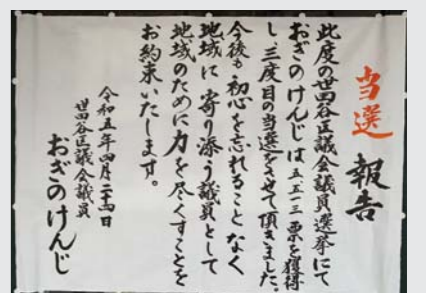 当選 報告
此度の世田谷区議会議員選挙にて
おぎのけんじは五五一三票を獲得
し、三度目の当選をさせて頂きました。
今後も初心を忘れることなく
地域に寄り添う議員として
地域のために力を尽くすことを
お約束いたします。
令和五年四月二十四日
世田谷区議会議員
おぎのけんじ